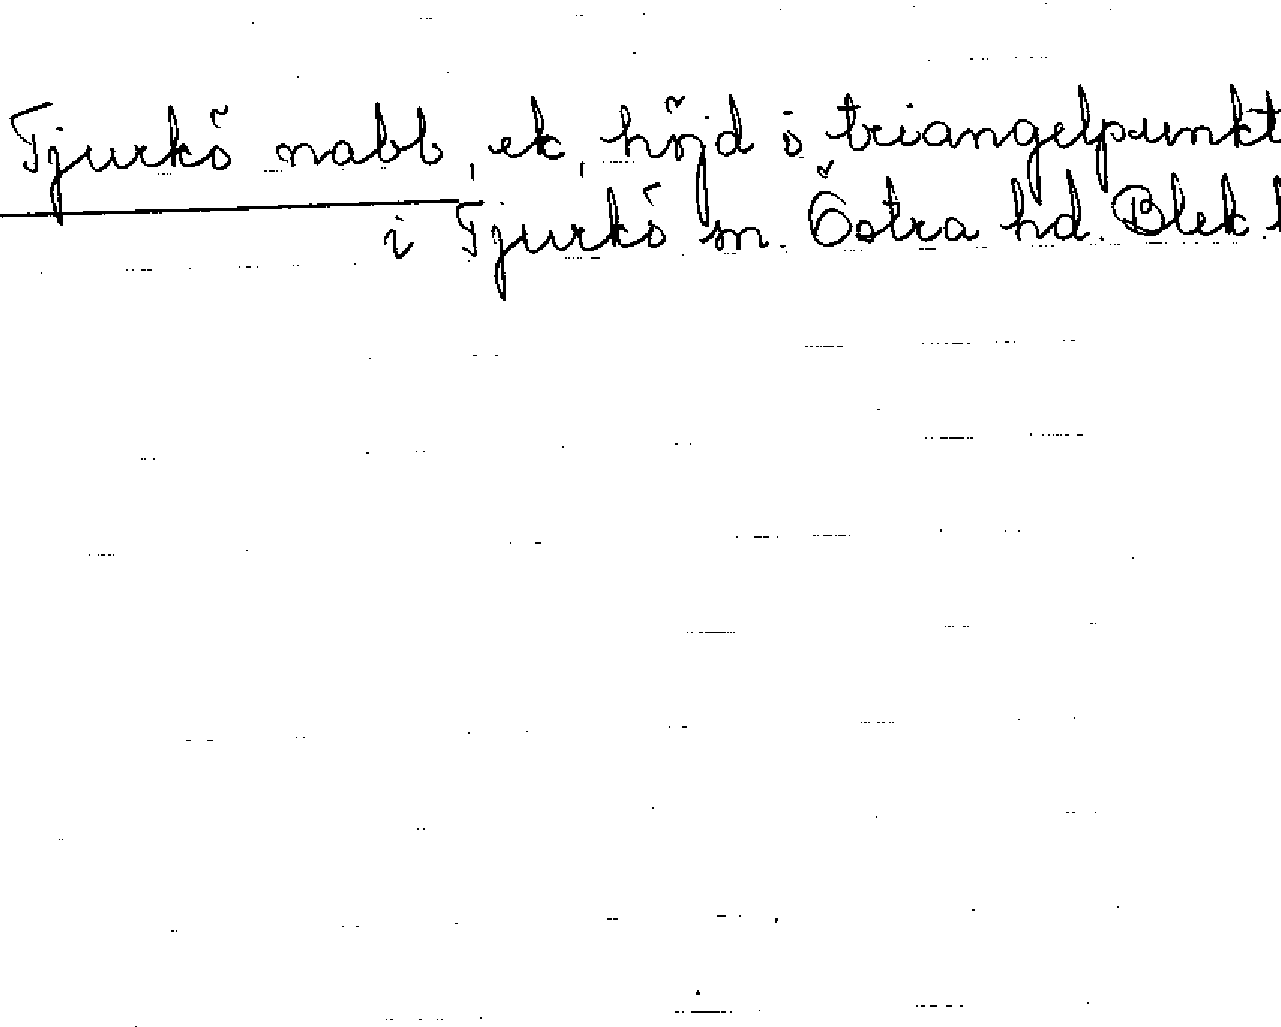 Tjurkö nabb, ek, höjd o triangelpunkt
i Tjurkö sn. Östra hd. Blek. l